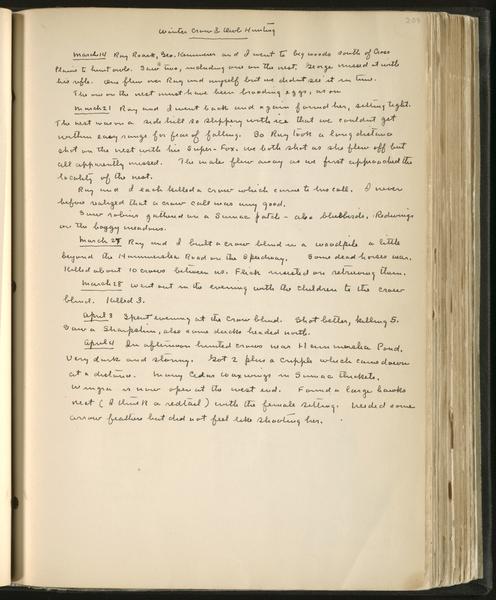 Winter Crow & Owl Hunting
209
March 14 Ray Roark, Geo. Kemmerer and I went to big woods south of Cross
Plains to hunt owls. Saw two, including one on the nest. George missed it with
his rifle. One flew over Ray and myself but we didnt see it in time.
The one on the nest must have been brooding eggs, as on
March 21 Ray and I went back and again found her, setting tight.
The nest was on a side hill so slippery with ice that we couldnt get
within easy range for fear of falling. So Ray took a long distance
shot on the nest with his Super-Fox. We both shot as she flew off but
all apparently missed. The male flew away as we first approached the
locality of the nest.
Ray and I each killed a crow which came to his call. I never
before realized that a crow call was any good.
Saw robins gathered in a Sumac patch - also bluebirds. Redwings
on the boggy meadows.
March 27 Ray and I built a crow blind in a woodpile a little
beyond the Hammersley Road on the Speedway. Some dead horses near.
Killed about 10 crows between us. Flick insisted on retrieving them.
March 28 Went out in the evening with the children to the crow
blind. Killed 3.
April 3 Spent evening at the Crow blind. Shot better, killing 5.
Saw a Sharpshin, also some ducks headed north.
April 4 In afternoon hunted crows near Pond.
Very dark and stormy. Got 2 plus a cripple which came down
at a distance. Many Cedar Waxwings in Sumac thickets.
Wingra is now open at the west end. Found a large hawks
nest (I think a redtail) with the female setting. Needed some
arrow feathers but did not feel like shooting her.